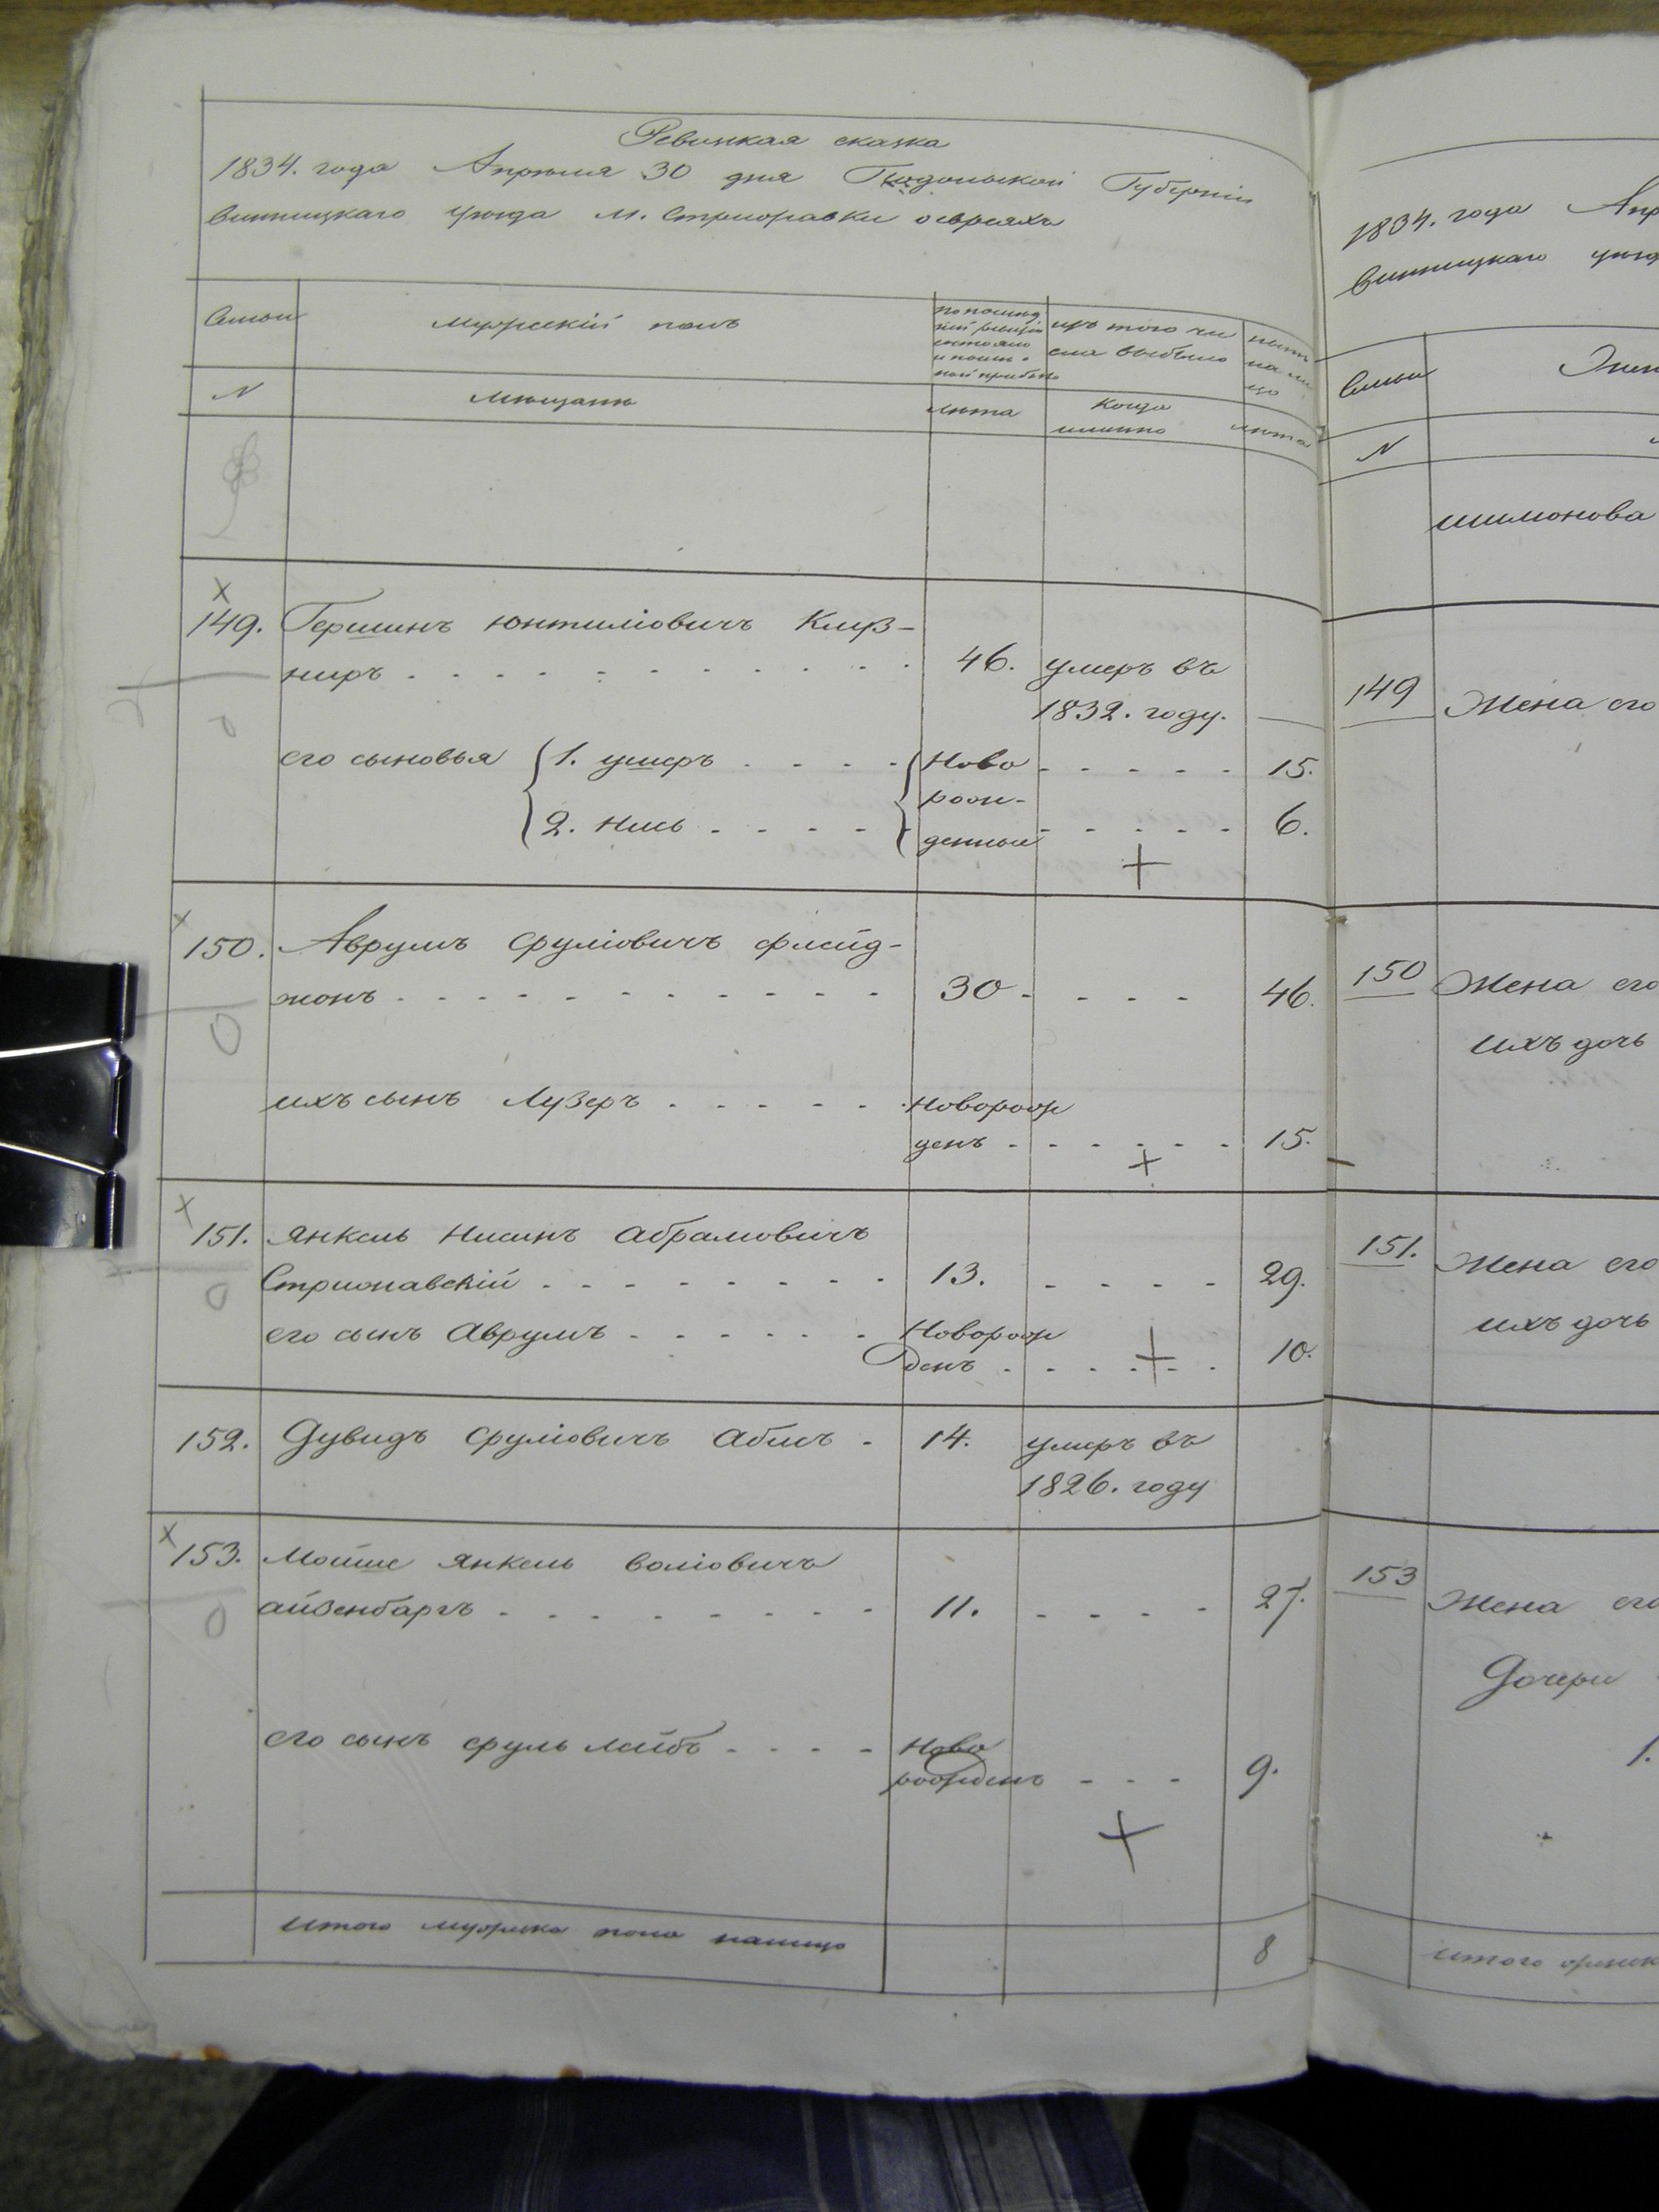 Ревижкая сказка
1834. года Апреля 30 дня Подольской Губерніи
Винницкаго уезда м. Стрижавки о евреяхъ
Семьи
мужескій полъ
изъ того чи
сла выбыло
N
мещане
лета
Когда
именно
лета
149. Гершинъ Юнтиліовичъ Куш-
ниръ 46. умеръ въ
1832. году.
его сыновья 1. ушеръ Ново 15.
рож-
2. Нись 6.
денные
150. Аврумъ сруліовичъ флейд-
жонъ 30 46.
ихъ сынъ Лузеръ Новорож
денъ 15.
151. Янкель Нисинъ Абрамовичъ
Стрижавскій 13. 29.
его сынъ Аврумъ Новорож
денъ 10.
152. Дувидъ сруліовичъ 14. умеръ въ
1826. году
153. Мойше Янкель воліовичъ
айзенбаргъ 11. 27.
его сынъ сруль лейбъ Ново
рожденъ 9.
итого мужска пола налицо 8
1834. года Апр
Винницкаго уезд
Семьи
Жен
N
шимонова
149 Жена его
150 Жена его
ихъ дочь
151. Жена его
ихъ дочь
153 Жена его
Дочери
1.
итого женск